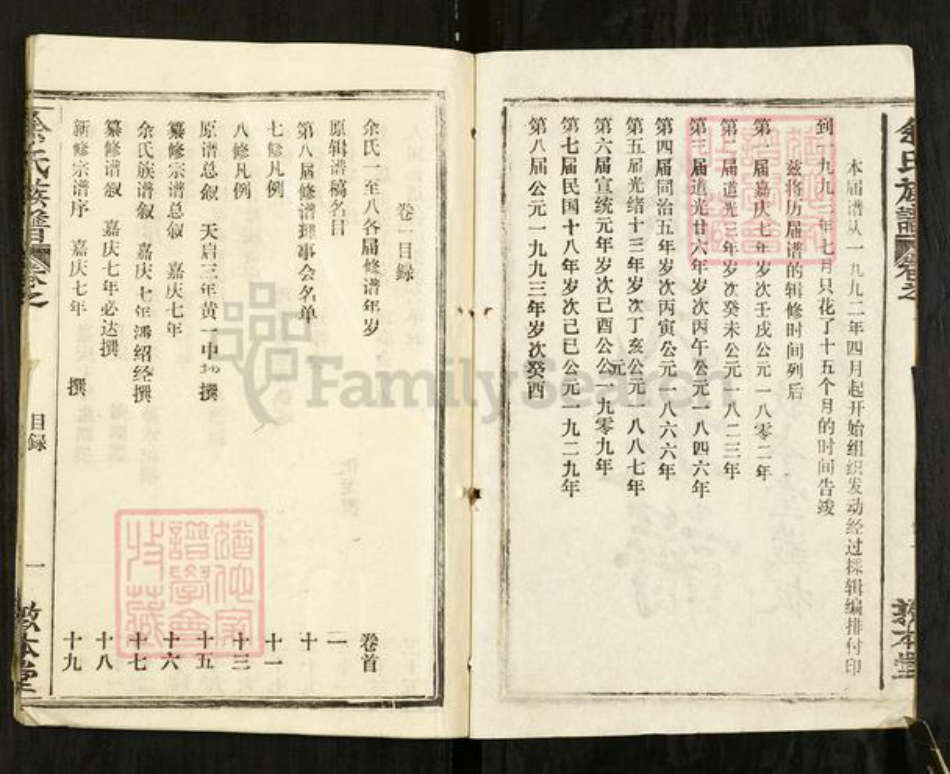 余氏族譜
卷之
敦本堂
本届谱从一九九二年四月起开始组织发动经过採辑编排付印
到一九九三年七月只花了十五个月的时间告竣
兹将历届谱的辑修时间列后
第一届嘉庆七年岁次壬戌公元一八零二年
第二届道光三年岁次癸未公元一八二三年
第三届道光廿六年岁次丙午公元一八四六年
第四届同治五年岁次丙寅公元一八六六年
第五届光绪十三年岁次丁亥公元一八八七年
第六届宣统元年岁次己酉公公元一九零九年
第七届民国十八年岁次己巳公元一九二九年
第八届公元一九九三年岁次癸酉
卷一目録
余氏一至八各届修谱年岁 卷首
原辑谱稿名目 二
第八届修谱理事会名单 十
七修凡例 十一
八修凡例 十三
原谱总叙 天启三年黄一中 撰 十五
纂修宗谱总叙 嘉庆七年 十六
余氏族谱叙 嘉庆七年潘绍经撰 十七
纂修谱叙 嘉庆七年必达撰 十八
新修宗谱序 嘉庆七年 撰 十九
余氏族谱
卷之
目録
一
敦本堂
FamilySearch